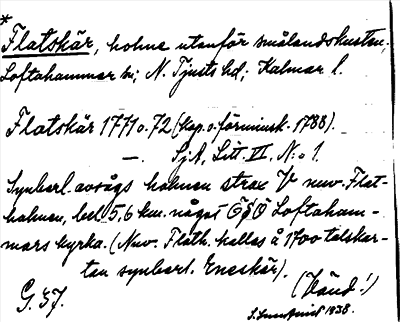 *
Flatskär, holme utanför smålandskusten,
Loftahammar sn; N. Tjusts hd; Kalmar l.
Flatskär 1771 o. 72 (kop. o. förminsk. 1788).
—. SjA, Litt. VI, N:o 1.
Synberl. avsågs holmen strax V nuv. Flat-
holmen, bel. 5,6 km. något ÖSÖ Loftaham-
mars kyrka. (Nuv. Flath. kallas å 1700 talskar-
tan synberl. Eneskär).
(Vänd!)
G. 37.
1938.